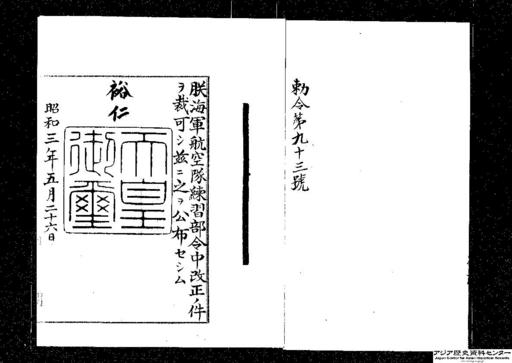 勅令第九十三號
朕海軍航空隊練習部令中改正ノ件
ヲ裁可シ茲ニ之ヲ公布セシム
裕仁
天皇
御璽
昭和三年五月二十六日
アジア歴史資料センター
Japan Center for Asian Historical Records